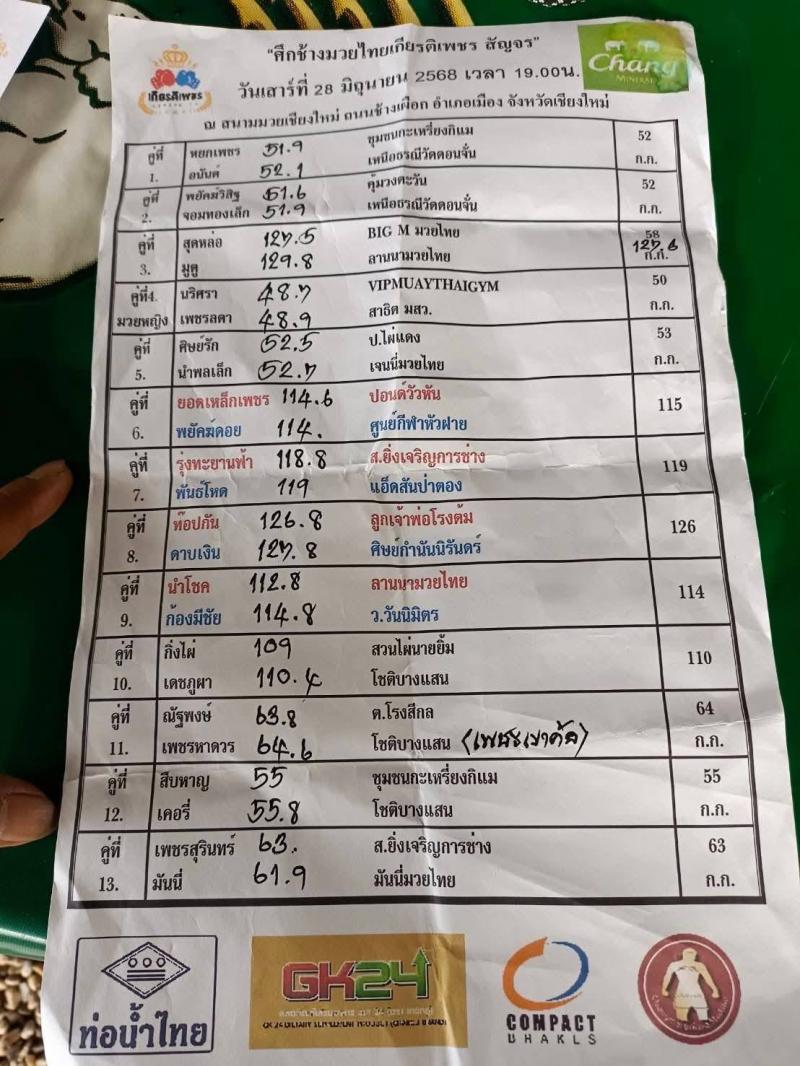 "ศึกช้างมวยไทยเกียรติเพชร สัญจร"
วันเสาร์ที่ 28 มิถุนายน 2568 เวลา 19.00น.
ณ สนามมวยเชียงใหม่ ถนนช้างเผือก อำเภอเมือง จังหวัดเชียงใหม่
เกียรติเพชร
Chang
MINERAL
คู่ที่ หยกเพชร 51.9 ชุมชนกะเหรี่ยงกิแม 52
1. อนันต์ 52.1 เหนือธรณีวัดดอนจั่น ก.ก.
คู่ที่ พยัคฆ์วิสิฐ 51.6 คุ้มวงตะวัน 52
2. จอมทองเล็ก 51.9 เหนือธรณีวัดดอนจั่น ก.ก.
คู่ที่ สุดหล่อ 127.5 BIG M มวยไทย 58 127.6
3. มูตู 129.8 ลานนามวยไทย ก.ก.
คู่ที่4. นริศรา 48.7 VIPMUAYTHAIGYM 50
มวยหญิง เพชรลดา 48.9 สาธิต มสว. ก.ก.
คู่ที่ ศิษย์รัก 52.5 ป.ไผ่แดง 53
5. นำพลเล็ก 52.7 เจนนี่มวยไทย ก.ก.
คู่ที่ ยอดเหล็กเพชร 114.6 ปอนด์วัวหัน 115
6. พยัคฆ์ดอย 114. ศูนย์กีฬาหัวฝาย
คู่ที่ รุ่งทะยานฟ้า 118.8 ส.ยิ่งเจริญการช่าง 119
7. พันธ์โหด 119 แอ๊ดสันป่าตอง
คู่ที่ ท๊อปกัน 126.8 ลูกเจ้าพ่อโรงต้ม 126
8. ดาบเงิน 127.8 ศิษย์กำนันนิรันดร์
คู่ที่ นำโชค 112.8 ลานนามวยไทย 114
9. ก้องมีชัย 114.8 ว.วันนิมิตร
คู่ที่ กิ่งไผ่ 109 สวนไผ่นายยิ้ม 110
10. เดชภูผา 110.4 โชติบางแสน
คู่ที่ ณัฐพงษ์ 63.8 ต.โรงสีกล 64
11. เพชรหาดวร 64.6 โชติบางแสน ก.ก.
คู่ที่ สืบหาญ 55 ชุมชนกะเหรี่ยงกิแม 55
12. เคอรี่ 55.8 โชติบางแสน ก.ก.
คู่ที่ เพชรสุรินทร์ 63. ส.ยิ่งเจริญการช่าง 63
13. มันนี่ 61.9 มันนี่มวยไทย ก.ก.
ท่อน้ำไทย
GK24
COMPACT
BRAKES